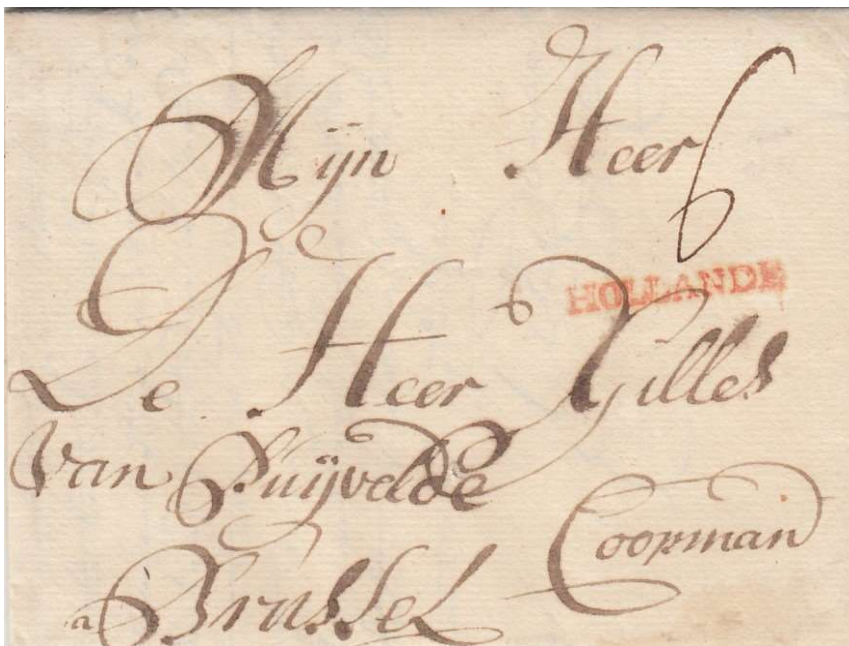 Mijn Heer 6
HOLLANDE
De Heer Gilles
Van Puijvelde
Coopman
a Brussel